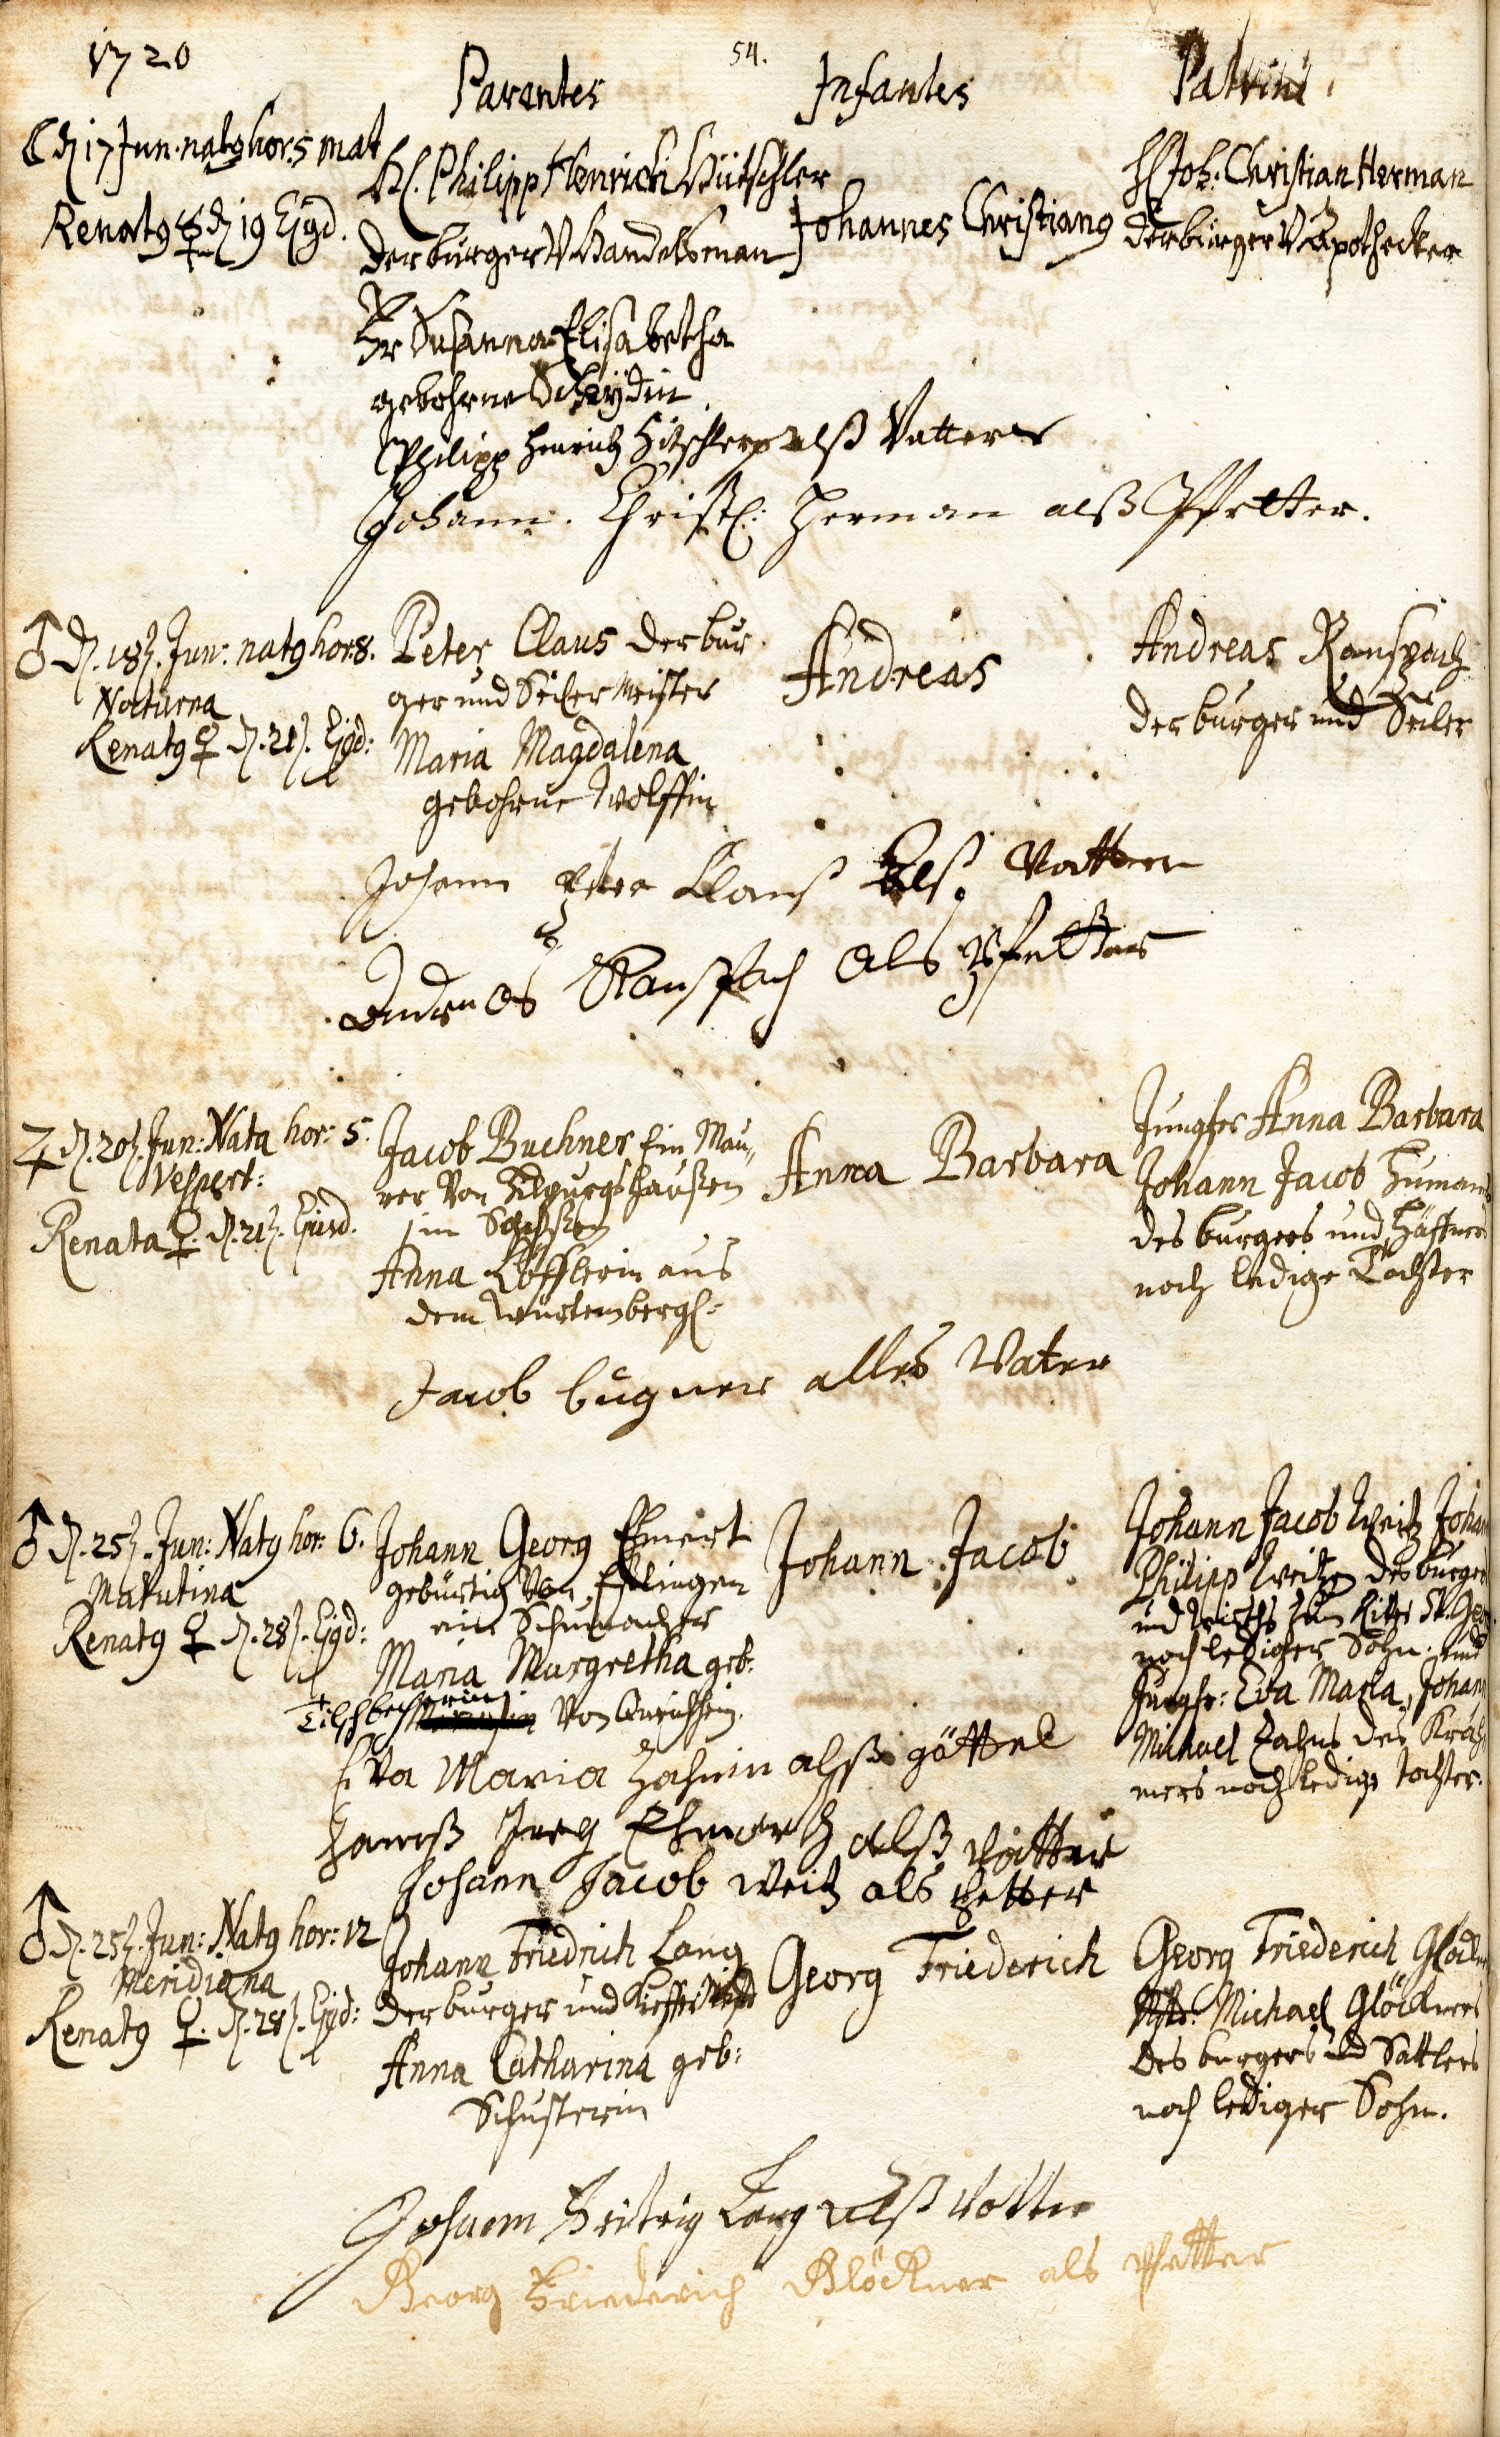 1720
54.
Parentes
Infantes
Patrini
☾ d 17 Jun. nat9 hor. 5 mat
Renat9 ☿ d 19 Ejgd.
H. Philipp Henrich Hütschler
der burger V. Handelsman
Fr Susanna Elisabetha
gebohrne
Johannes Christian9
H Joh. Christian Herman
der burger V. Apothecker
Philipp Henrich Hitschler alß Vatter
Johann. Christ: Herman alß Pfetter.
♂ d. 18. Jun: nat9 hor. 8.
Nocturna
Renat9 ♀ d. 21. Ejgd:
Peter Claus der bur
ger und Seiler Meister
Maria Magdalena
gebohrne Wolffin
Andreas
Andreas Ranspach
der burger und Seiler
Johann Peter Clauß Alß Vatter
Andreas Ranspach Als Pfetter
♃ d. 20. Jun: Nata hor: 5.
Vespert:
Renata ♀. d. 21. Ejusd.
Jacob Buchner Ein Mau,,
rer Von
im
Anna Löfflerin aus
dem Würtembergl:
Anna Barbara
Jungfer Anna Barbara
Johann Jacob
des burgers und
noch ledige Tochter
Jacob bugner alles Vater
♂ d. 25. Jun: Nat9 hor: 6.
Matutina
Renat9 ♀ d. 28. Ejgd:
Johann Georg Ehmert
gebürtig Von Eßlingen
ein Schumacher
Maria Margretha geb:
Von
Johann Jacob
Johann Jacob Weitz Johan
Philipp Weitzen des burgers
und Wirths zum Ritter St. Georg
noch lediger Sohn. und
Jungfr: Eva Maria, Johann
Michael Zahns des Kräh
mers noch ledige tochter.
Eva Maria Zahnin alß göttel
Hannß Jreg Ehmert alß Vatter
Johann Jacob Weitz als Petter
♂ d. 25. Jun: Nat9 hor: 12
Meridiana
Renat9 ♀. d. 28. Ejgd:
Johann Friedrich Lang
der burger und Kieffer
Anna Catharina geb:
Schusterin
Georg Friederich
Georg Friederich Glöckner
Michael Glöckners
des burgers und Sattlers
noch lediger Sohn.
Johann Lang alß Vatter
Georg Friederich Glöckner als Pfetter